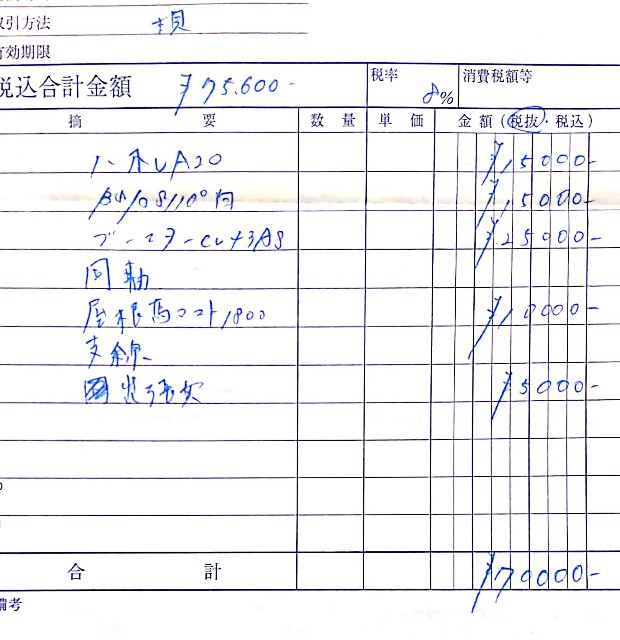 取引方法 現
有効期限
税込合計金額 ¥75,600- 税率 8% 消費税額等
摘要 数量 単価 金額(税抜・税込)
ハ゜ネLA20 ¥15000-
¥15000-
ブースターCU43AS ¥25000-
同軸
屋根馬マスト1800 ¥10000-
支線
出張費 ¥5000-
合計 ¥70000-
備考